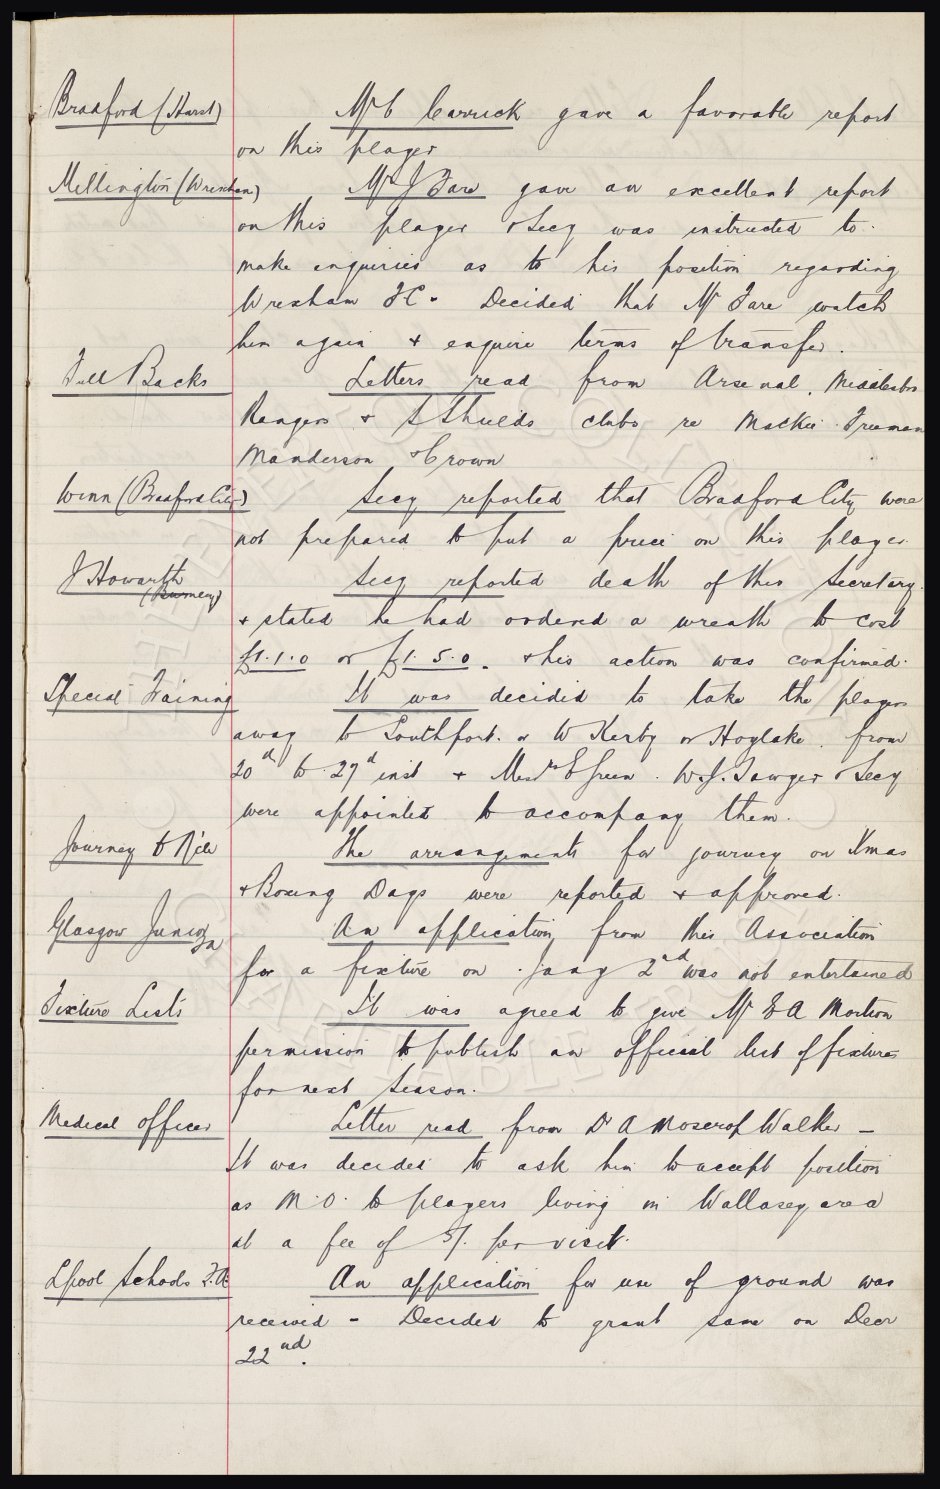 Bradford (Hurst)
Mr C Carruck gave a favorable report
on this player
Millington (Wrexham)
Mr J Fare gave an excellent report
on this player & Secy was instructed to
make enquiries as to his position regarding
Wrexham F C - Decided that Mr Fare watch
him again & enquire terms of transfer.
Full Backs
Letters read from Arsenal, Middlesbro
Rangers & S Shields clubs re Mackie Freeman
Manderson & Crown
Winn (Bradford City)
Secy reported that Bradford City were
not prepared to put a price on this player.
J Howarth
(Burnley)
Secy reported death of this Secretary
& stated he had ordered a wreath to cost
£1.1.0 or £1.5.0. & his action was confirmed.
Special Training
It was decided to take the players
away to Southport. or W Kerby or Hoylake. from
20th to 27th inst & Messrs E Green. W.J. Sawyer & Secy
were appointed to accompany them.
Journey to N'cle
The arrangements for journey on Xmas
& Boxing Days were reported & approved.
Glasgow Junior
FA
An application from this Association
for a fixture on Jany 2nd was not entertained
Fixture Lists
It was agreed to give Mr E A Morton
permission to publish an official list of fixtures
for next Season.
Medical Officer
Letter read from Dr A Moscrop Walker -
It was decided to ask him to accept position
as M.O. to players living in Wallasey area
at a fee of 5/. per visit.
Lpool Schools F.A
An application for use of ground was
received - Decided to grant same on Decr
22nd.